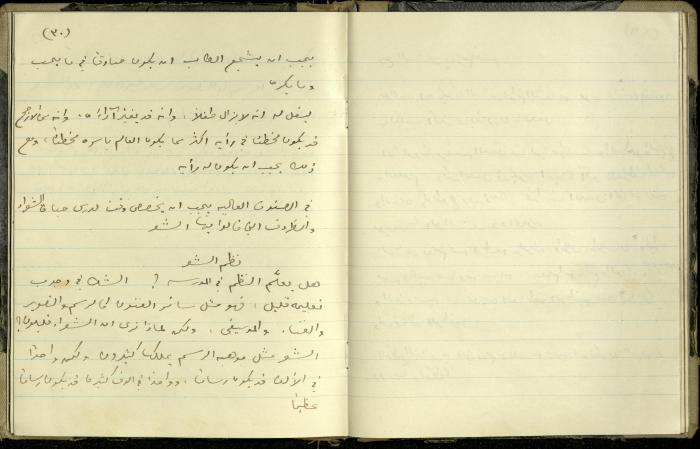 (٣٠)
يجب ان يشجع الطالب ان يكون صادقا في ما يحب
وما يكره
ليقل له انه لا يزال طفلاً، وانه قد يغير آراءه. وانه
قد يكون مخطئا في رأيه اكثر مما يكون العالم باسره مخطئا، ومع
ذلك يجب ان يكون له رأيه
في الصفوف العاليه يجب ان يخصص وقت لدرس حياة الشعراء
والظروف التي قالوا بها الشعر
نظم الشعر
هل يعلَّم النظم في المدرسه؟ الشك في وجوب
تعليمه قليل، فهو مثل سائر الفنون كالرسم والتصوير
والغناء والموسيقى، ولكن لماذا نرى ان الشعراء قليلون؟
الشعر مثل موهبة الرسم يملكها كثيرون ولكن واحدا
في الألف قد يكون رساما، وواحدا في الوف كثيره قد يكون رساما
عظيما